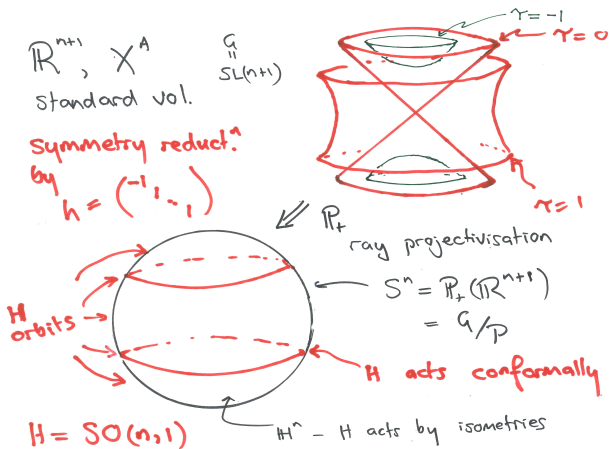 ℝⁿ⁺¹, X^A
G
=
SL(n+1)
standard vol.
symmetry reduct.ⁿ
by
h = (⁻¹, 1 ⋱ 1)
τ=-1
τ=0
τ=1
ℙ₊
ray projectivisation
Sⁿ = ℙ₊(ℝⁿ⁺¹)
= G/P
H
orbits
H acts conformally
H = SO(n,1)
ℍⁿ - H acts by isometries